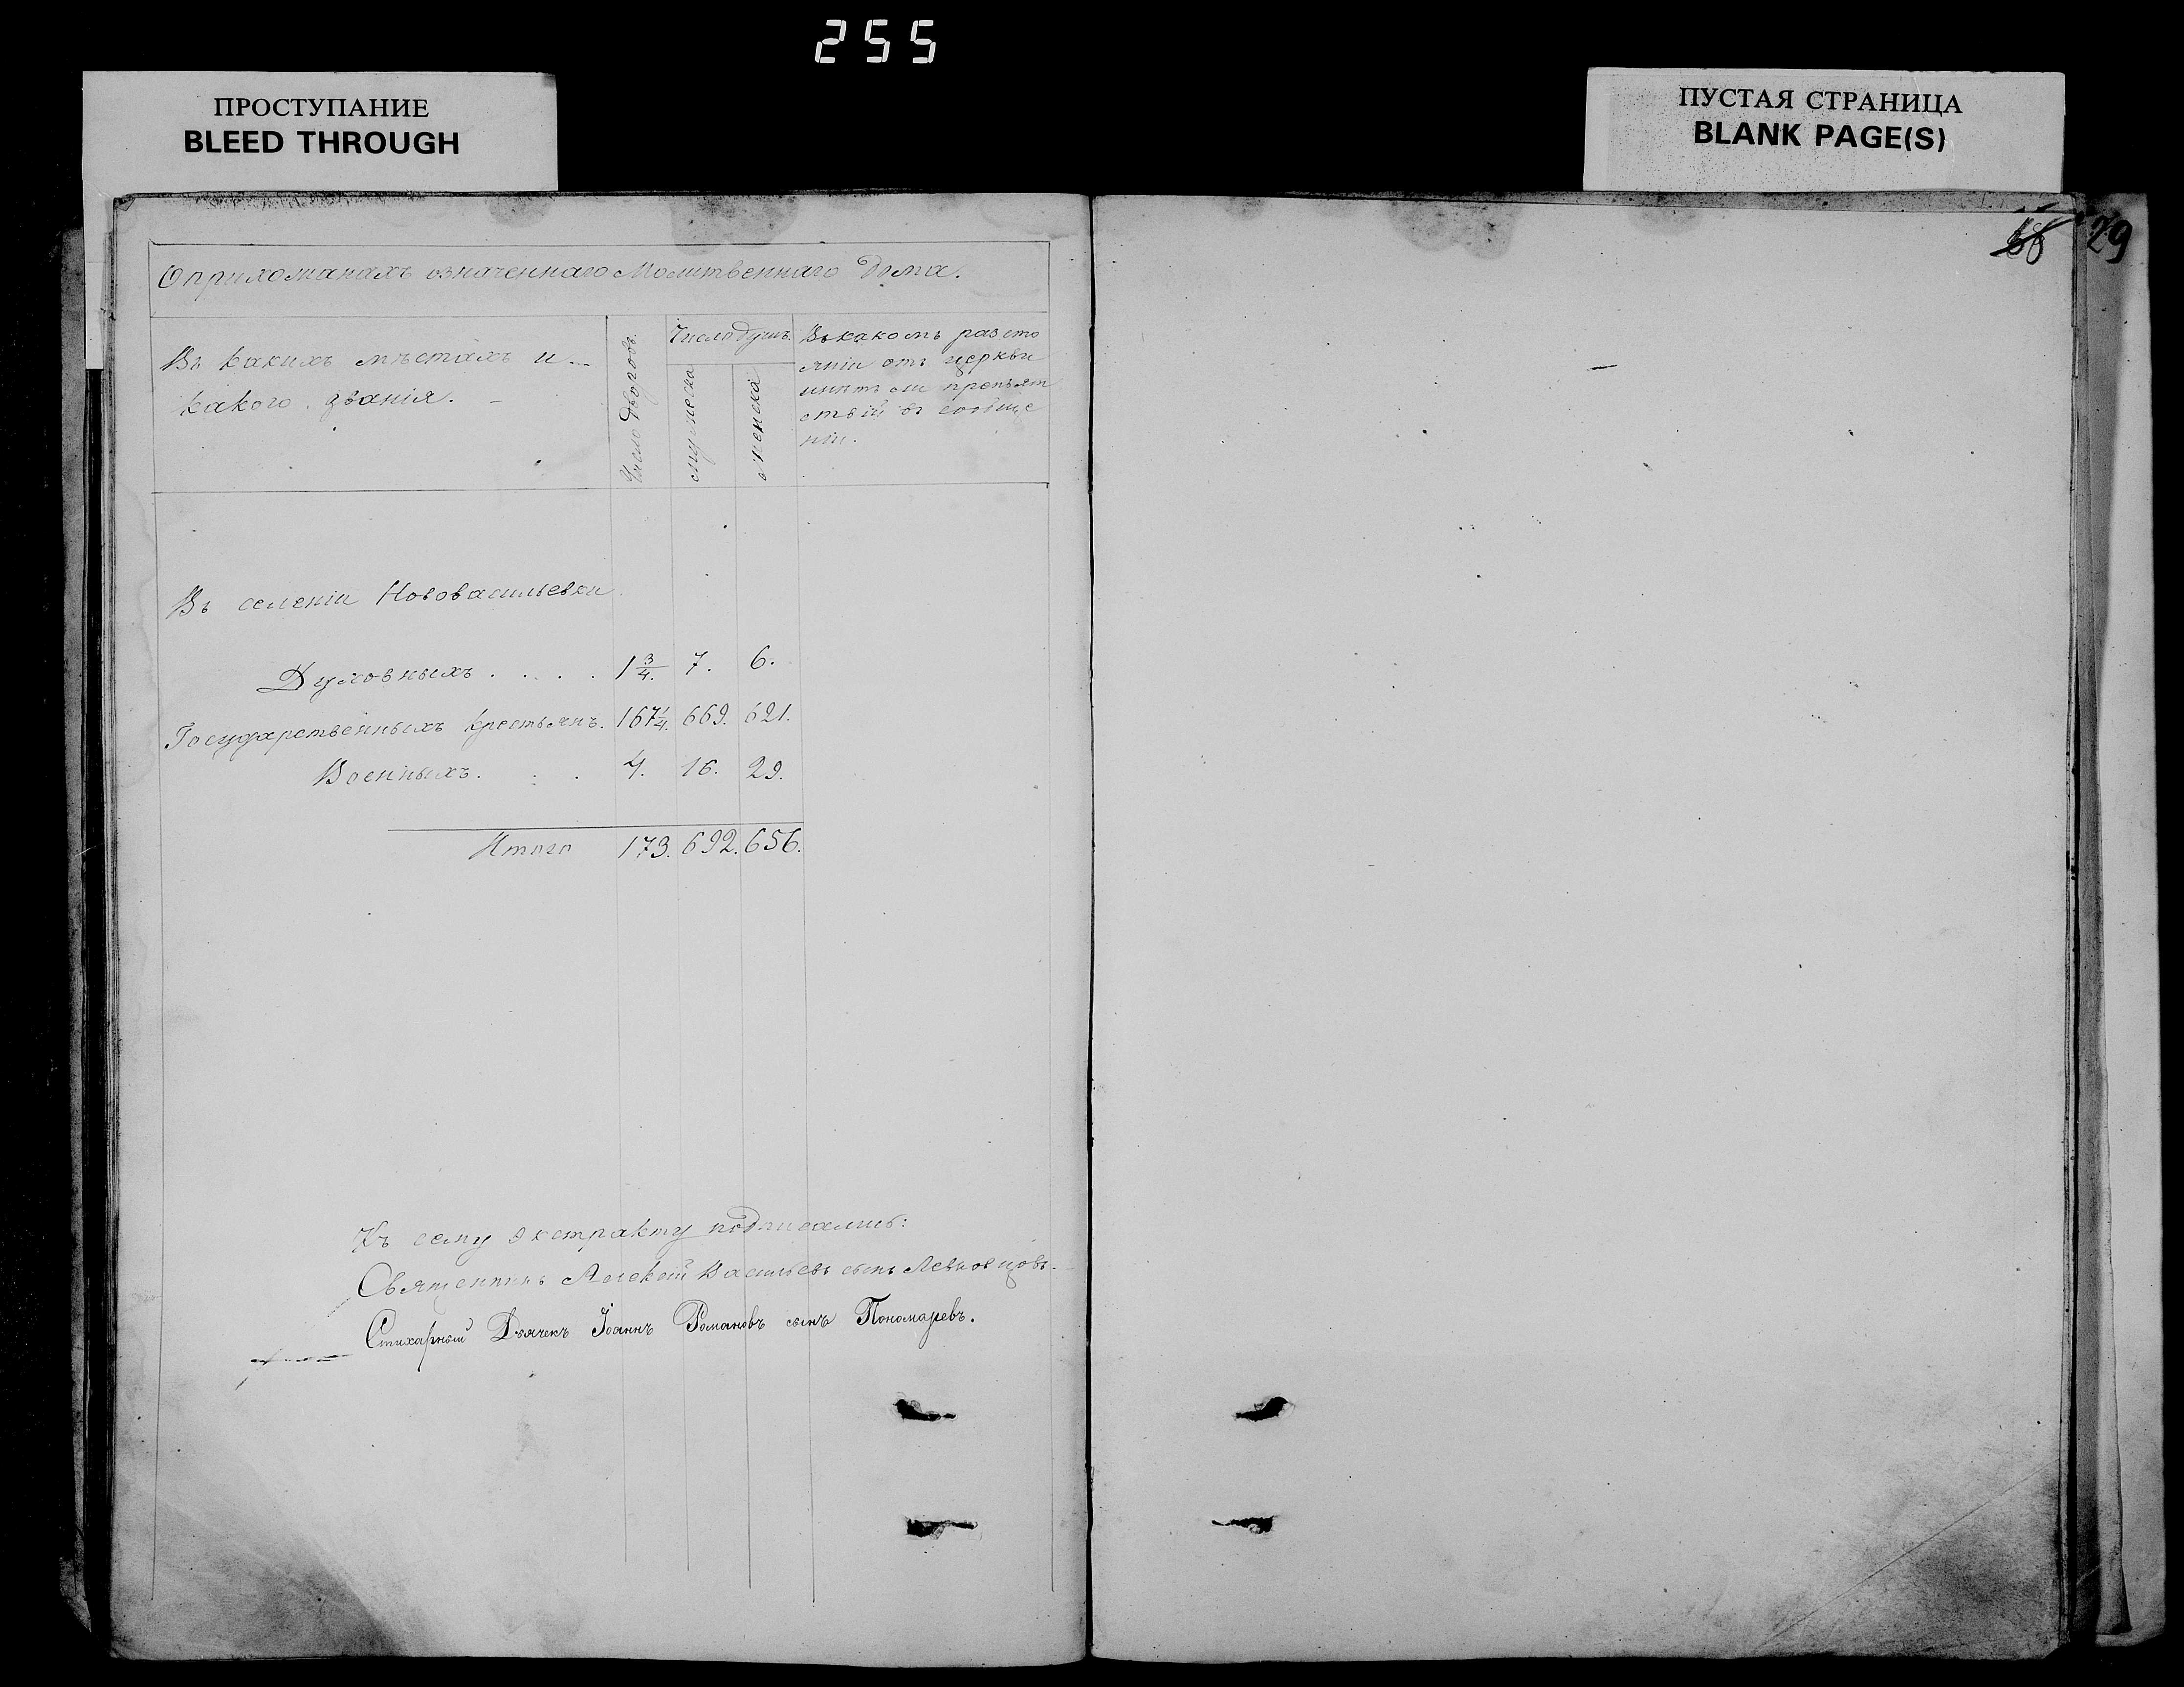 255
ПРОСТУПАНИЕ
BLEED THROUGH
ПУСТАЯ СТРАНИЦА
BLANK PAGE(S)
29
О прихожанахъ означеннаго Молитвеннаго Дома.
Въ какихъ мѣстахъ и
какого званія.
Число дворовъ.
Число душъ.
мужеска
женска
Въ какомъ разсто
яніи отъ церкви
и нѣтъ ли препят
ствій въ сообще
ніи.
Въ селеніи Нововасильевки
Духовныхъ . . . . 1 3/4. 7. 6.
Государственныхъ крестьянъ. 167 1/4. 669. 621.
Военныхъ. . . 4. 16. 29.
Итого 173. 692. 656.
Къ сему экстракту подписались:
Священникъ Алексій Васильевъ сынъ Левковцовъ.
Стихарный Дьячекъ Іоаннъ Романовъ сынъ Пономаревъ.